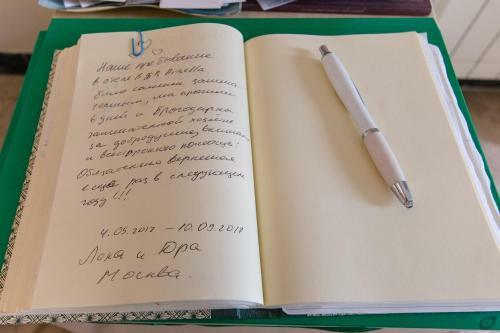 Наше пребывание
в отеле
было самым замеча-
тельным, мы прожили
6 дней и благодарны
замечательной хозяйке
за добродушие, внимание
и всестороннюю помощь!
Обязательно вернемся
еще раз в следующем
году!!!
4.09.2017 – 10.09.2017
Лена и Юра
Москва.